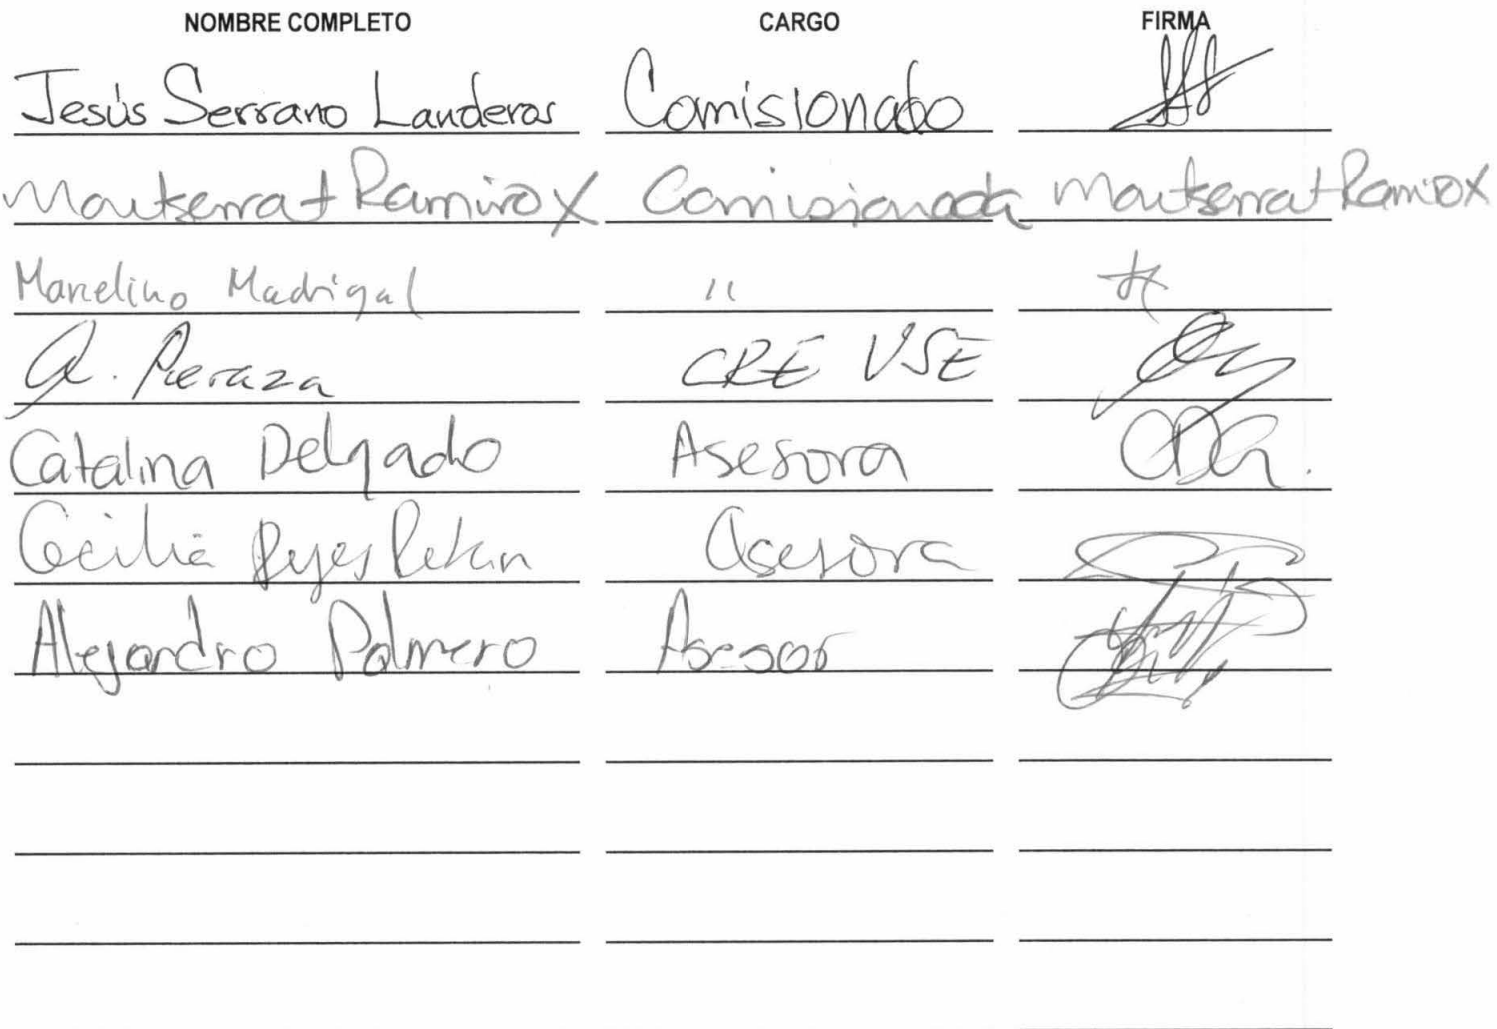 NOMBRE COMPLETO CARGO FIRMA
Jesús Serrano Landeros Comisionado
Montserrat Ramiro X Comisionada Montserrat Ramiro X
Marcelino Madrigal "
A. Peraza CRE VSE
Catalina Delgado Asesora
Cecilia Reyes Retan Asesora
Alejandro Palmero Asesor